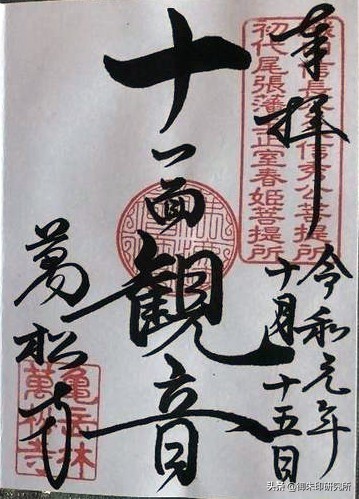 奉拝
信長 信秀公菩提所
初代尾張藩主正室春姫菩提所
令和元年
十月十五日
十一面観音
萬松寺
亀岳林
萬松寺
头条 @御朱印研究所